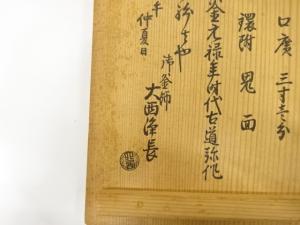 口廣 三寸三分
鐶附 鬼面
釜元禄年時代古道弥作
也
年
仲夏日
御釜師
大西浄長